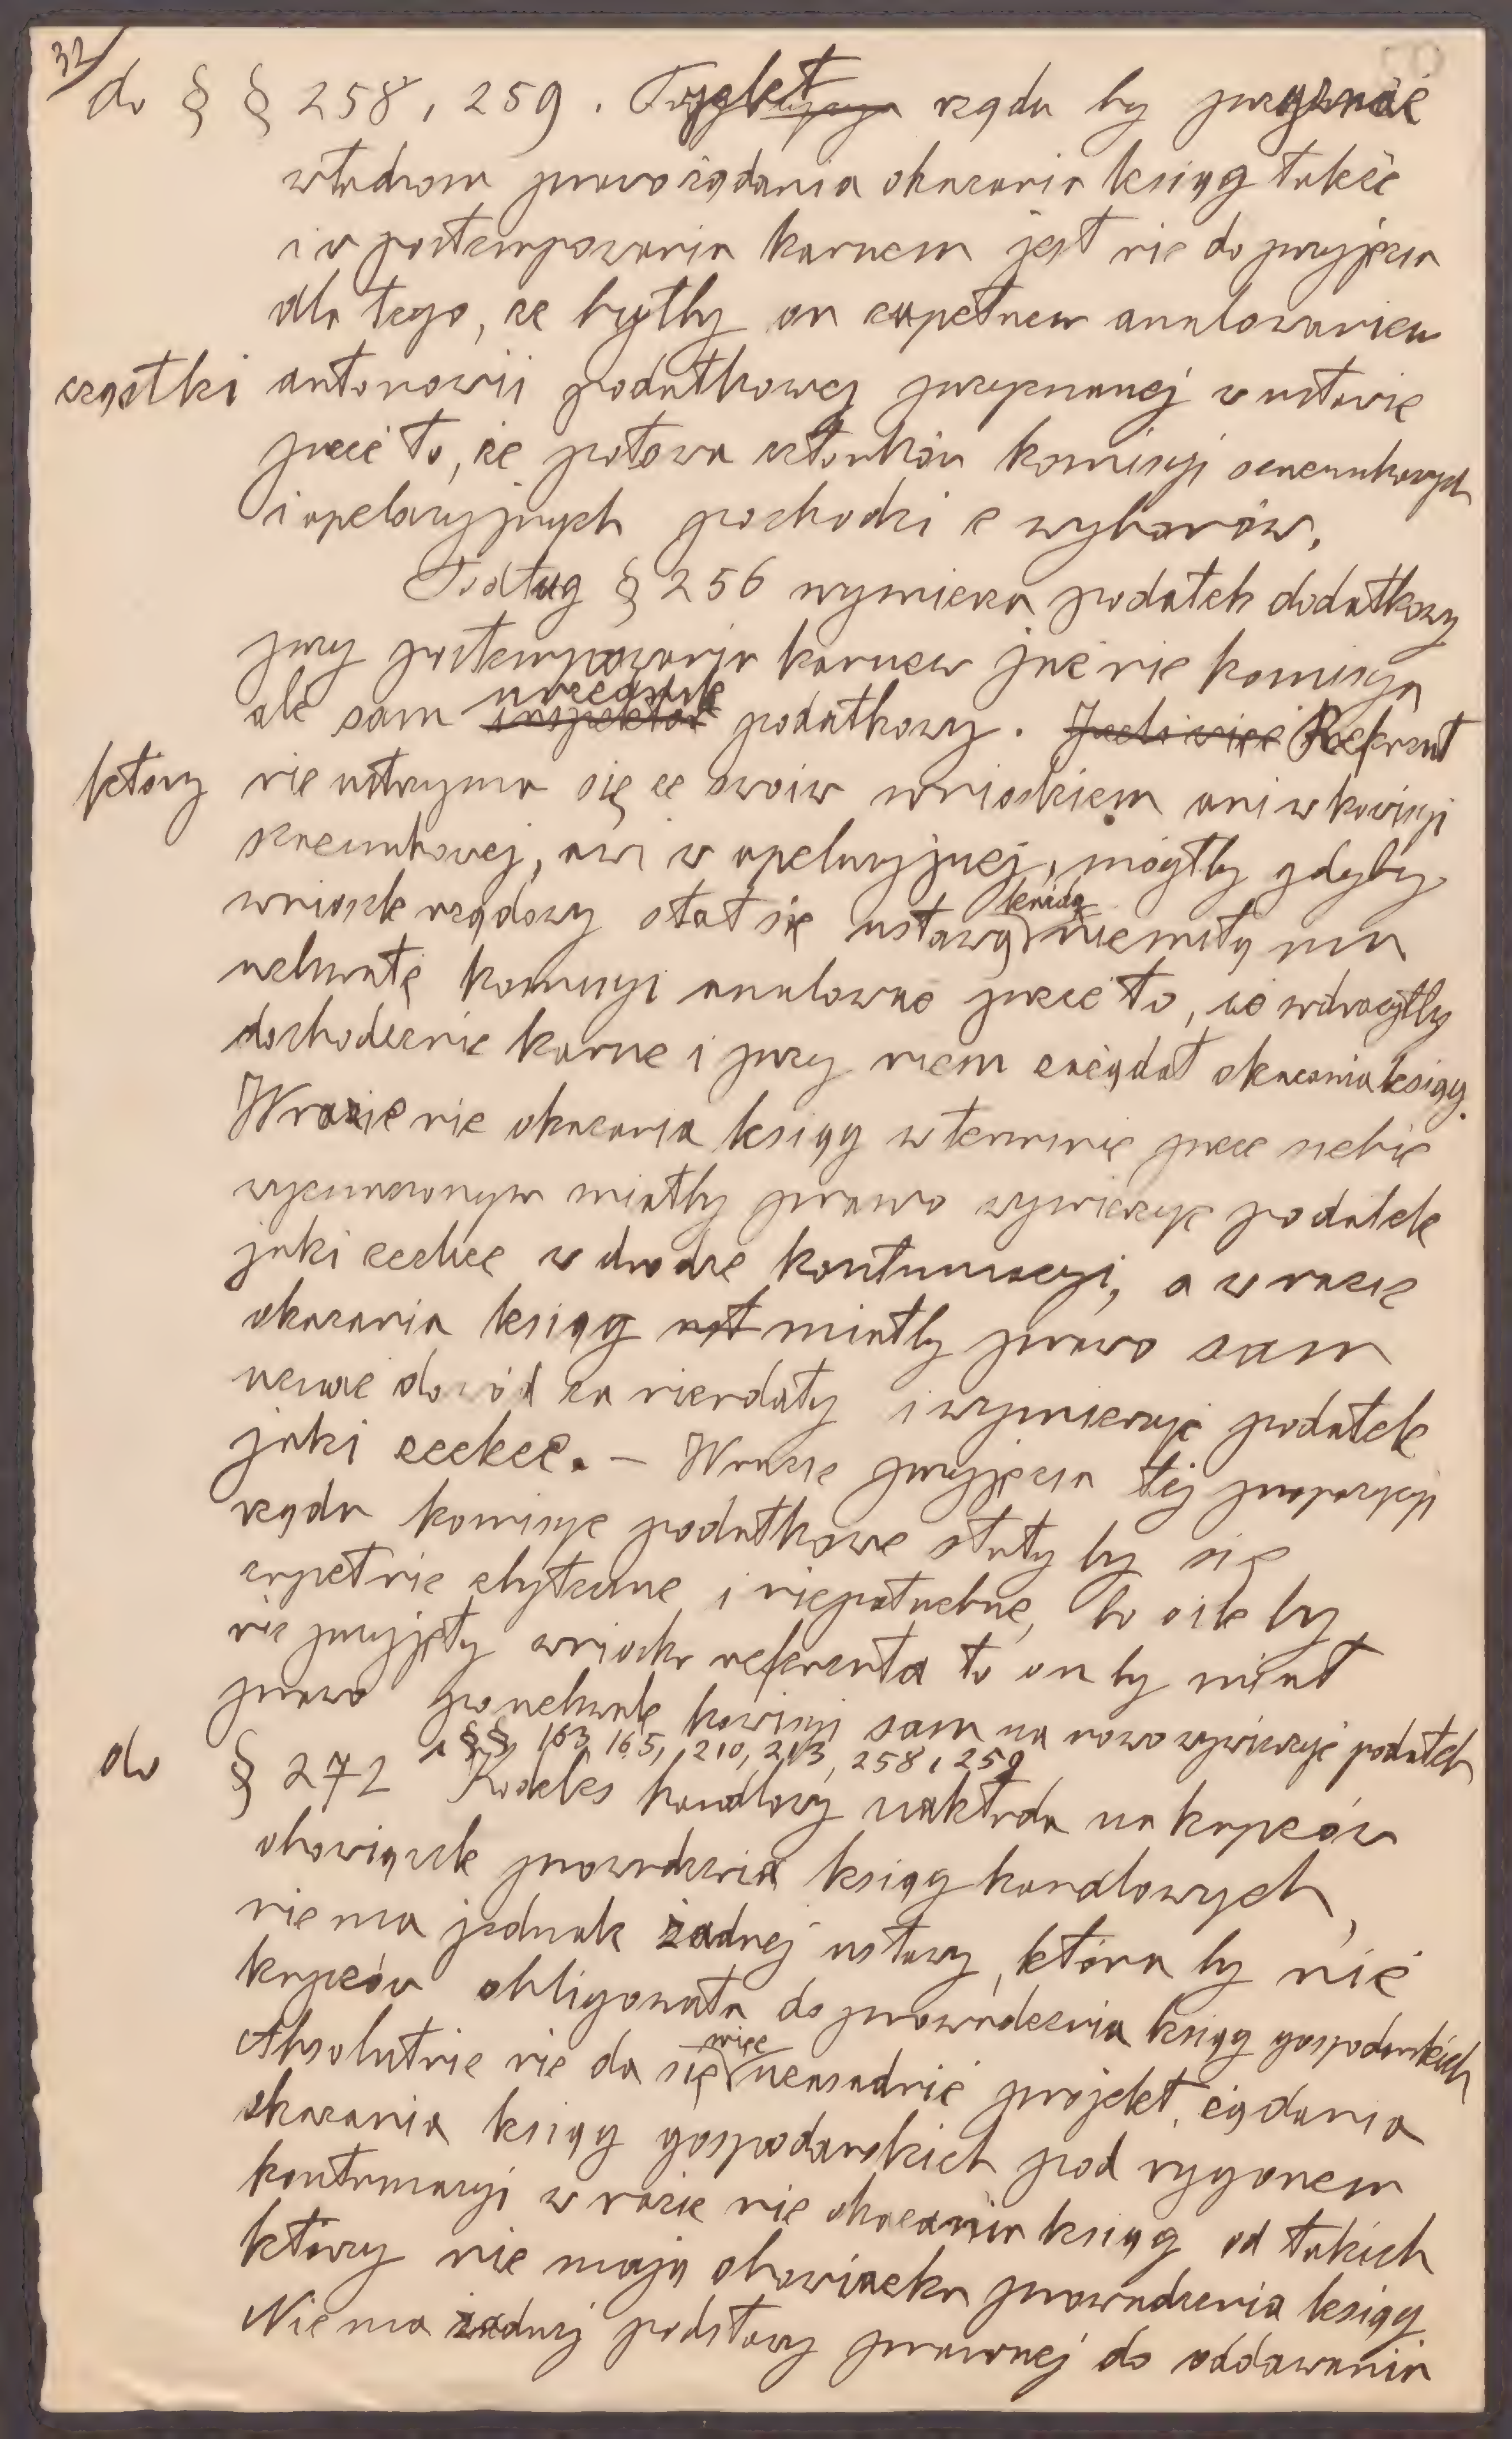 32/
do § § 258, 259. Projekt rządu by przyznać
władzom prawo żądania okazania ksiąg także
i w postempowaniu karnem jest nie do przyjęcia
dla tego, że byłby on zupełnem anulowaniem
cząstki autonomii podatkowej przyznanej w ustawie
przez to, że połowa członków komisyi szacunkowych
i apelacyjnych pochodzi z wyborów.
Podług § 256 wymierza podatek dodatkowy
przy postempowaniu karnem już nie komisya
urzędnik
ale sam inspektor podatkowy. Jeżeli więc Referent
który nie utrzyma się ze swoim wnioskiem ani w komisyi
szacunkowej, ani w apelacyjnej, mógłby gdyby
każdą
wniosek rządowy stał się ustawą niemiłą mu
uchwałę komisyi anulować przez to, że wdrożyłby
dochodzenie karne i przy niem zażądał okazania ksiąg.
W razie nie okazania ksiąg w terminie przez siebie
wyznaczonym miałby prawo wymierzyć podatek
jaki zechce w drodze kontumacyi, a w razie
okazania ksiąg miałby prawo sam
uznać dowód za nieudały i wymierzyć podatek
jaki zechce. – W razie przyjęcia tej propozycyi
rządu komisye podatkowe stały by się
zupełnie zbyteczne i niepotrzebne, bo o ile by
nie przyjęły wniosku referenta to on by miał
prawo po uchwale komisyi sam na nowo wymierzyć podatek
§§ 163, 165, 210, 213, 258, 259
do § 272 Kodeks handlowy nakłada na kupców
obowiązek prowadzenia ksiąg handlowych,
nie ma jednak żadnej ustawy, która by nie
kupców obligowała do prowadzenia ksiąg gospodarskich
więc
Absolutnie nie da się uzasadnić projekt żądania
okazania ksiąg gospodarskich pod rygorem
kontumacyi w razie nie okazania ksiąg od takich
którzy nie mają obowiązku prowadzenia ksiąg
Nie ma żadnej podstawy prawnej do oddawania